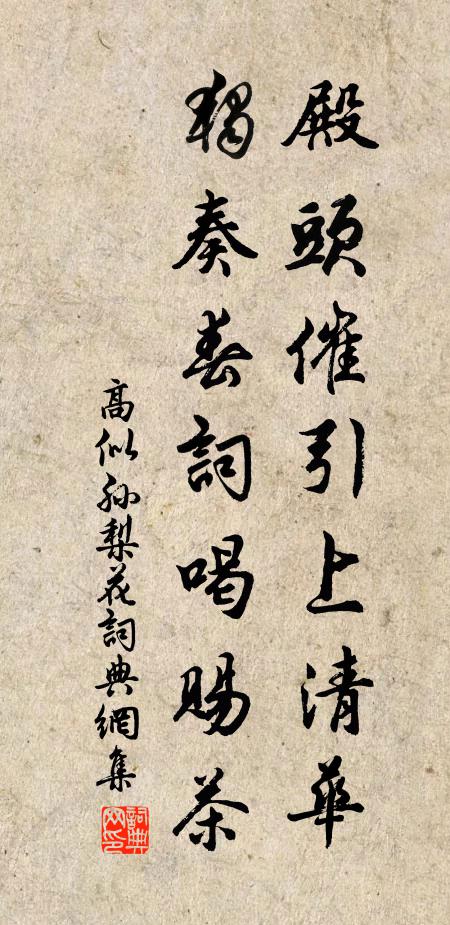 殿頭催引上清華
獨奏春詞喝賜茶
高似孫梨花詞典網集
詞典網印